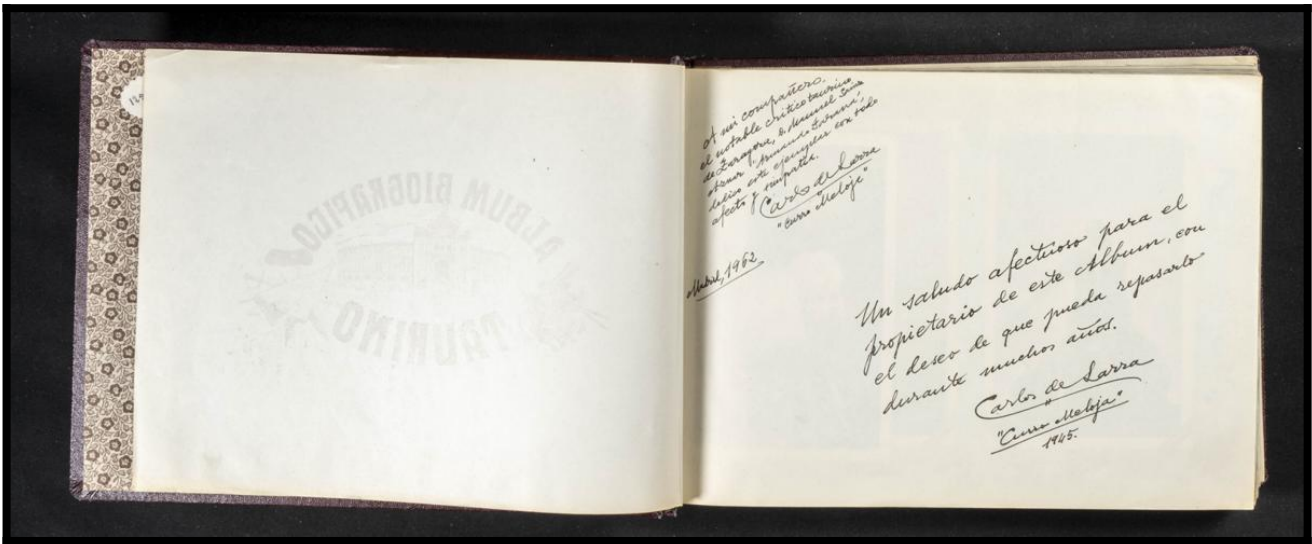 129
ALBUM BIOGRAFICO
TAURINO
A mi compañero,
el notable crítico taurino
de Zaragoza, D. Manuel
dedico este ejemplar con todo
afecto y simpatía.
Carlos de Larra
"Curro Meloja"
Madrid, 1962
Un saludo afectuoso para el
propietario de este Album, con
el deseo de que pueda repasarlo
durante muchos años.
Carlos de Larra
"Curro Meloja"
1945.